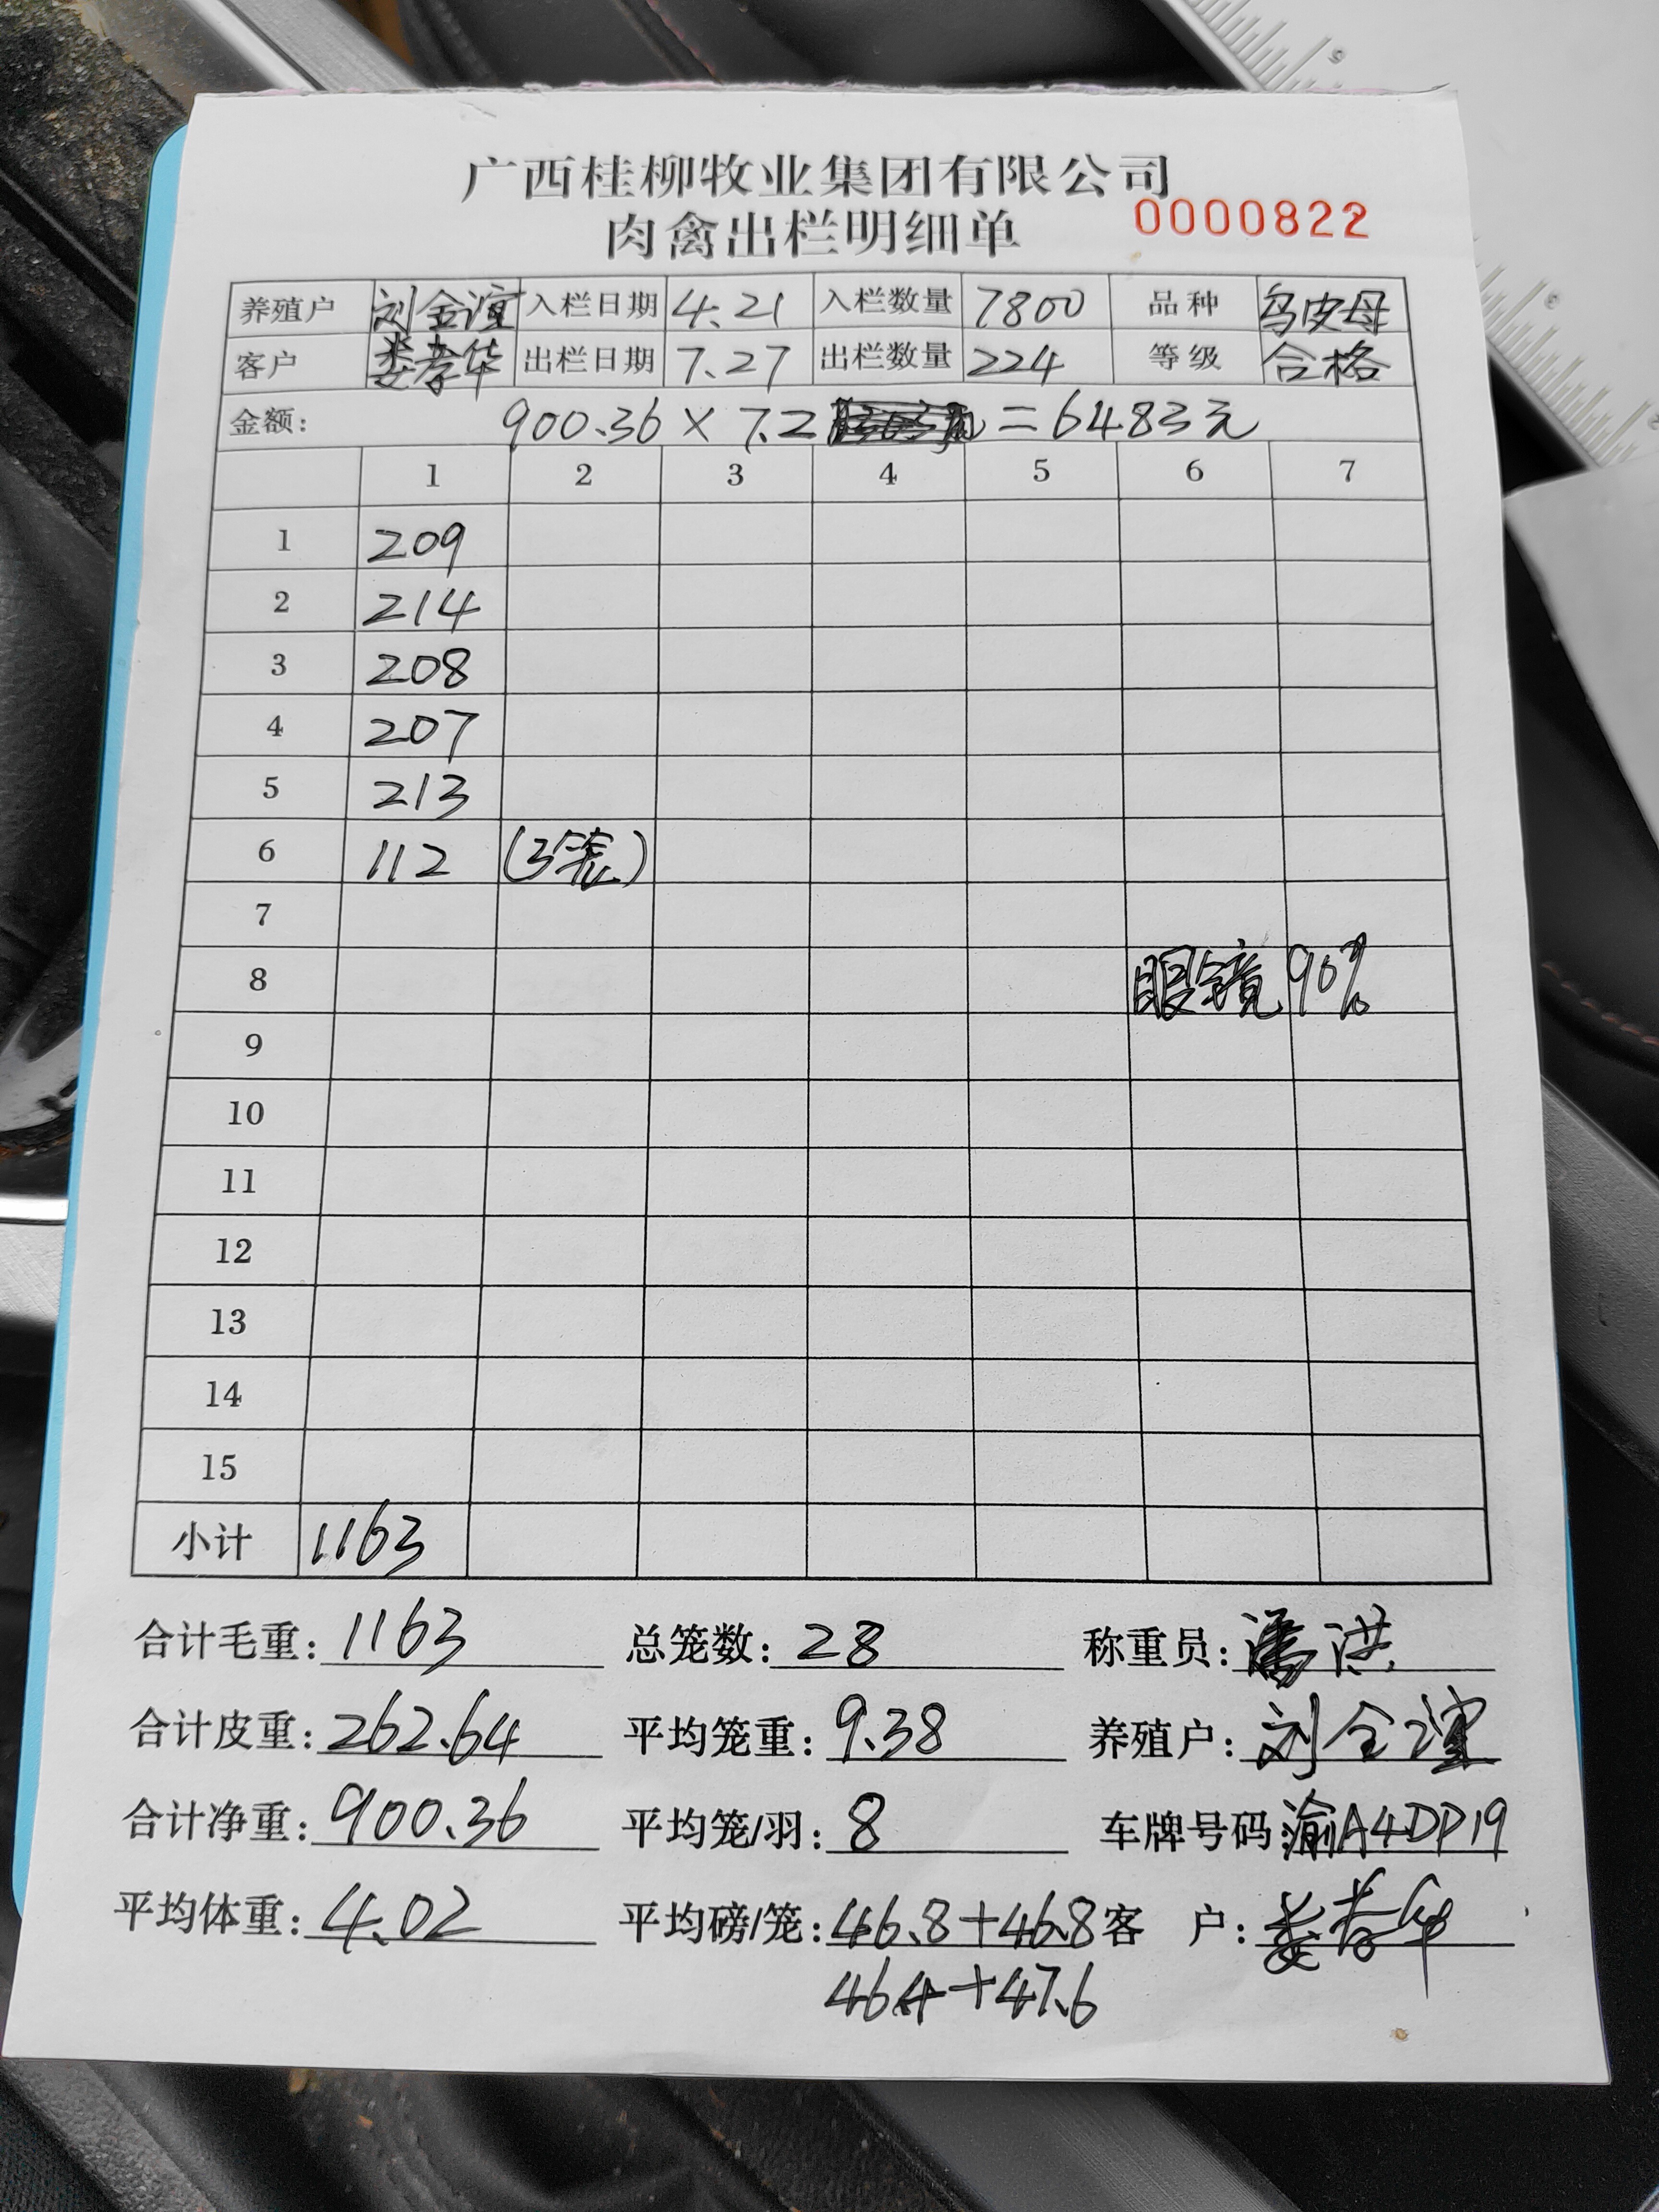 广西桂柳牧业集团有限公司
肉禽出栏明细单 0000822
养殖户 刘金谊 入栏日期 4.21 入栏数量 7800 品种 乌皮母
客户 娄孝华 出栏日期 7.27 出栏数量 224 等级 合格
金额: 900.36×7.2 =6483元
1 2 3 4 5 6 7
1 209
2 214
3 208
4 207
5 213
6 112 (3笼)
7
8 眼镜90%
9
10
11
12
13
14
15
小计 1163
合计毛重: 1163 总笼数: 28 称重员: 潘洪
合计皮重: 262.64 平均笼重: 9.38 养殖户: 刘金谊
合计净重: 900.36 平均笼/羽: 8 车牌号码: 渝A4DP19
平均体重: 4.02 平均磅/笼: 46.8+46.8 客户: 娄孝华
46.4+47.6